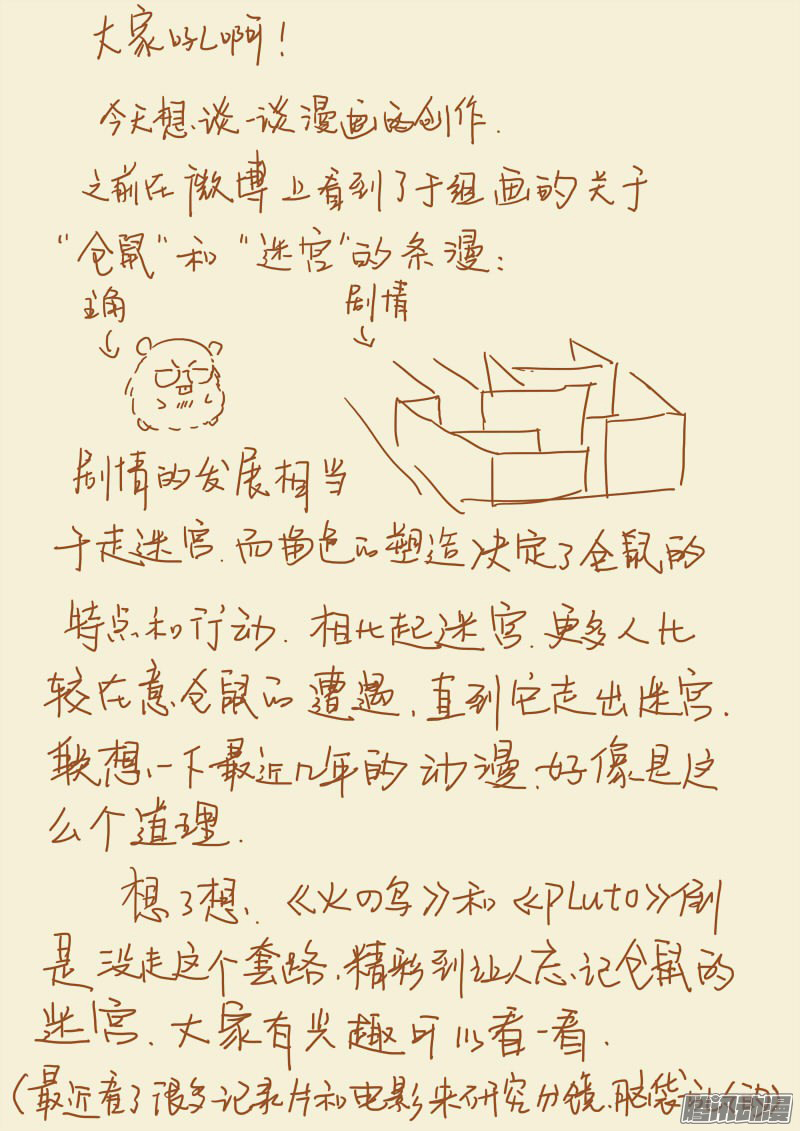 大家好啊！
今天想谈一谈漫画的创作.
之前在微博上看到了于组画的关于
“仓鼠”和“迷宫”的条漫：
主角
剧情
剧情的发展相当
于走迷宫.而角色的塑造决定了仓鼠的
特点和行动.相比起迷宫.更多人比
较在意仓鼠的遭遇.直到它走出迷宫.
联想一下最近几年的动漫.好像是这
么个道理.
想了想.《火の鸟》和《PLuto》倒
是没走这个套路.精彩到让人忘记仓鼠的
迷宫.大家有兴趣可以看一看.
(最近看了很多记录片和电影来研究分镜.脑袋
腾讯动漫